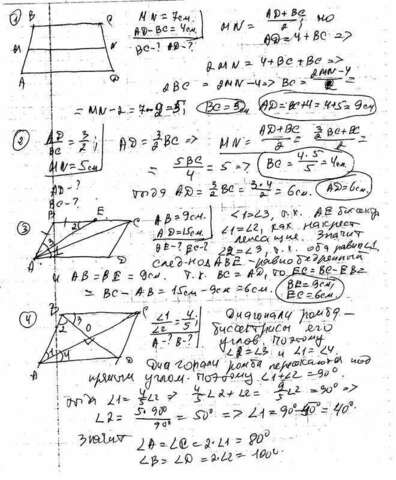 ① B C
M N
A D
MN = 7см.
AD-BC = 4см.
BC-? AD-?
MN = AD+BC / 2 ; но
AD = 4+BC =>
2MN = 4+BC+BC =>
2BC = 2MN-4 => BC = 2MN-4 / 2 =
= MN-2 = 7-2 = 5; BC=5см AD=BC+4=4+5=9см
② AD/BC = 3/2 ;
MN = 5см
AD-?
BC-?
AD = 3/2 BC => MN = AD+BC / 2 = 3/2 BC+BC / 2 =
= 5BC / 4 = 5 => BC = 4·5 / 5 = 4см
тогда AD = 3/2 BC = 3·4 / 2 = 6см. AD=6см
③ B E C
1 2
3
A D
AB = 9см.
AD = 15см
BE-? BC-?
∠1=∠3, т.к. AE биссек
∠1=∠2, как накрест
лежащие. Значит
∠2=∠3, т.к. оба равны ∠1
след-но ABE - равнобедренный
и AB = BE = 9см. т.к. BC = AD, то EC = BC-EB =
= BC - AB = 15см - 9см = 6см.
BE=9см
EC=6см
④ B C
2 3
O
1 4
A D
∠1/∠2 = 4/5 ;
A-? B-?
Диагонали ромба -
биссектрисы его
углов. Поэтому
∠2=∠3 и ∠1=∠4.
Диагонали ромба пересекаются под
прямым углом. Поэтому ∠1+∠2=90°
тогда ∠1 = 4/5 ∠2 => 4/5 ∠2 + ∠2 = 9/5 ∠2 = 90° =>
∠2 = 5·90° / 9 = 50° => ∠1 = 90°-50° = 40°.
Значит
∠A = ∠C = 2·∠1 = 80°
∠B = ∠D = 2·∠2 = 100°.